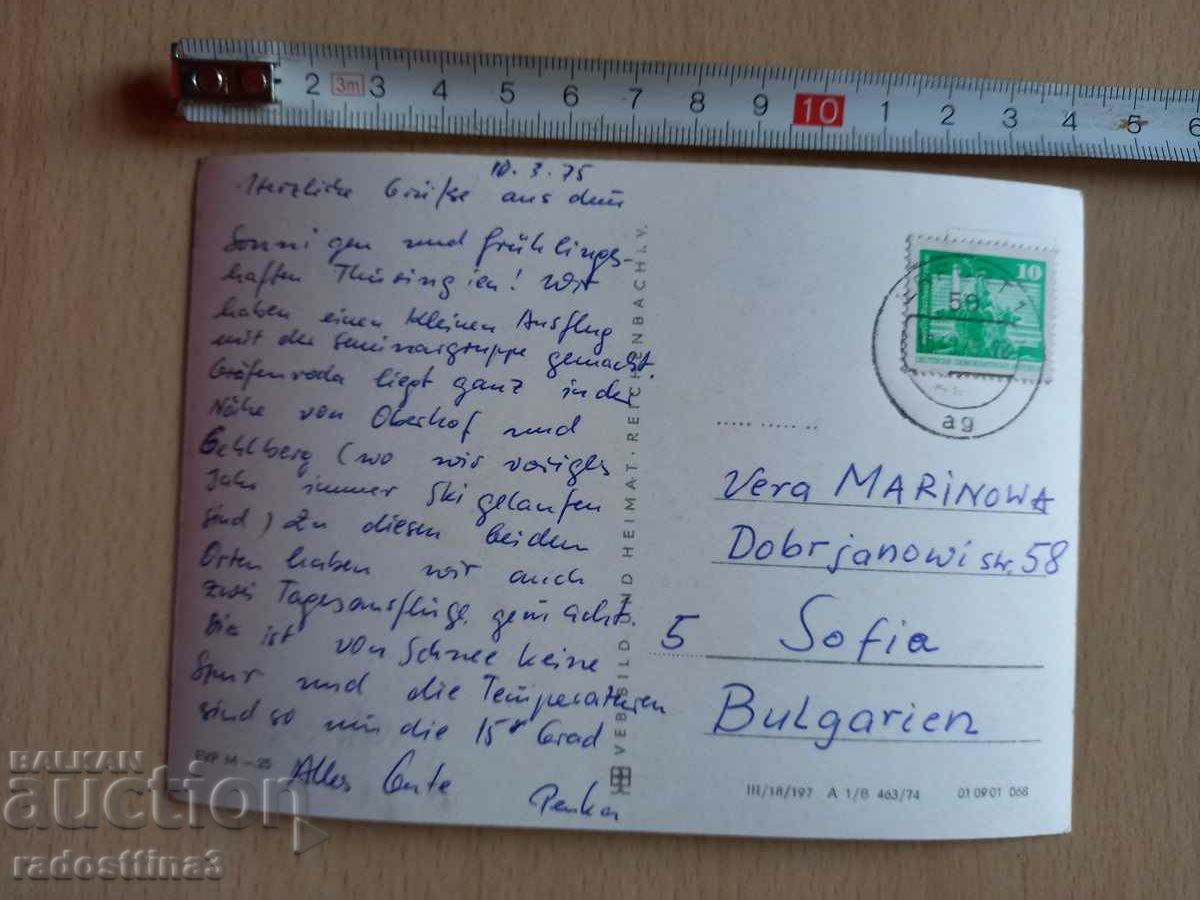 2 3m 3 4 5 6 7 8 9 10 1 2 3 4 5 6
10.3.75
Herzliche Grüße aus dem
Sonnigen und frühlings-
haften Thüringien! Wir
haben einen kleinen Ausflug
mit der Seminargruppe gemacht.
Gräfenroda liegt ganz in der
Nähe von Oberhof und
Gehlberg (wo wir voriges
Jahr immer Ski gelaufen
sind) Zu diesen beiden
Orten haben wir auch
zwei Tagesausflüge gemacht.
Hier ist von Schnee keine
Spur und die Temperaturen
sind so um die 15° Grad
Alles Gute Penka
EVP M -25
VEB BILD UND HEIMAT · REICHENBACH I. V.
10
DEUTSCHE DEMOKRATISCHE
ag
Vera MARINOWA
Dobrjanowi str. 58
5 Sofia
Bulgarien
III/18/197 A 1/B 463/74 01 09 01 068
BALKAN
auction
radosttina3